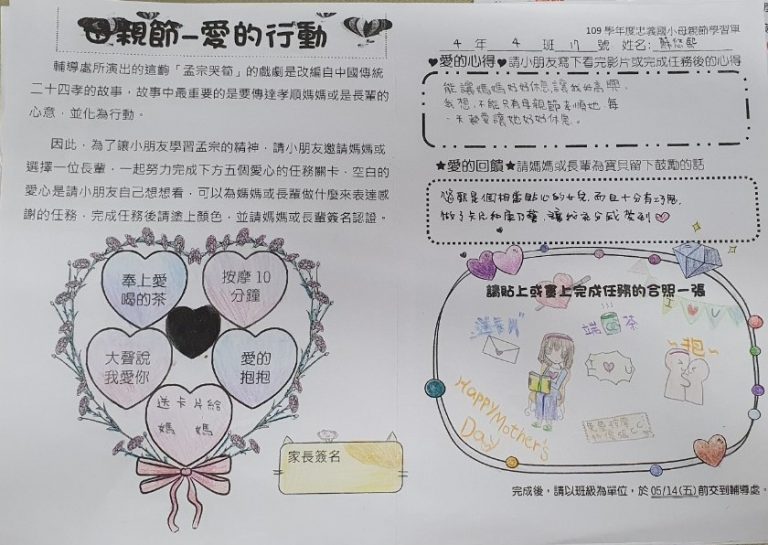 母親節-愛的行動
輔導處所演出的這齣「孟宗哭筍」的戲劇是改編自中國傳統
二十四孝的故事，故事中最重要的是要傳達孝順媽媽或是長輩的
心意，並化為行動。
因此，為了讓小朋友學習孟宗的精神，請小朋友邀請媽媽或
選擇一位長輩，一起努力完成下方五個愛心的任務關卡，空白的
愛心是請小朋友自己想想看，可以為媽媽或長輩做什麼來表達感
謝的任務，完成任務後請塗上顏色，並請媽媽或長輩簽名認證。
奉上愛
喝的茶
按摩 10
分鐘
大聲說
我愛你
愛的
抱抱
送卡片給
媽 媽
家長簽名
109 學年度忠義國小母親節學習單
4 年 4 班 17 號 姓名：
♥愛的心得♥請小朋友寫下看完影片或完成任務後的心得
能讓媽媽好好休息,讓我好高興,
我想,不能只有母親節孝順她,每
一天都要讓她好好休息。
★愛的回饋★請媽媽或長輩為寶貝留下鼓勵的話
是個相當貼心的女兒,而且十分有
請貼上或畫上完成任務的合照一張
送卡片
端茶
~抱~
HAPPY Mother's
Day
完成後，請以班級為單位，於 05/14(五)前交到輔導處。